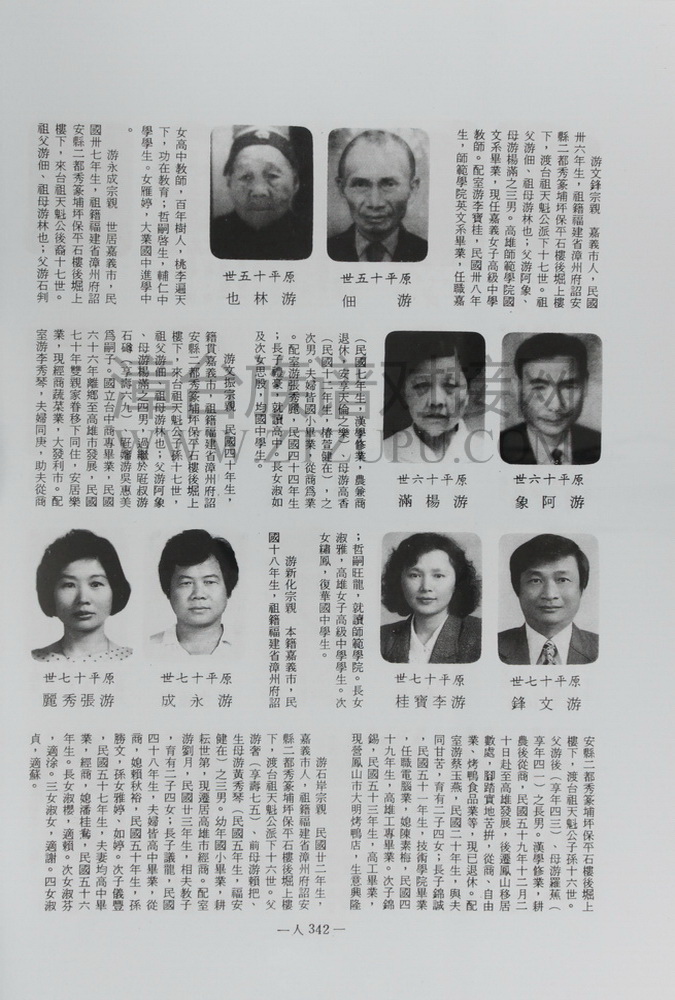 游文鋒宗親　嘉義市人，民國
卅六年生，祖籍福建省漳州府詔安
縣二都秀篆埔坪保平石樓後堀上樓
下，渡台祖天魁公派下十七世。祖
父游佃、祖母游林也；父游阿象、
母游楊滿之三男。高雄師範學院國
文系畢業，現任嘉義女子高級中學
教師。配室游李寶桂，民國卅八年
生，師範學院英文系畢業，任職嘉
原平十五世
游佃
原平十五世
游林也
女高中教師，百年樹人，桃李遍天
下，功在教育；哲嗣啓生，輔仁中
學學生。女雁婷，大業國中進學中
。
游永成宗親　世居嘉義市，民
國卅七年生，祖籍福建省漳州府詔
安縣二都秀篆埔坪保平石樓後堀上
樓下，來台祖天魁公後裔十七世。
祖父游佃、祖母游林也；父游石判
原平十六世
游阿象
原平十六世
游楊滿
（民國七年生，漢學修業，農兼商
退休，安享天倫之樂）、母游高香
（民國十二年生，椿萱健在），之
次男，夫婦皆國小畢業，從商爲業
。配室游張秀麗，民國四十四年生
；長子禮豪，就讀高中。長女淑如
及次女思殷，均國中學生。
游文振宗親　民國四十年生，
籍貫嘉義市，祖籍福建省漳州府詔
安縣二都秀篆埔坪保平石樓後堀上
樓下，來台祖天魁公子孫十七世，
祖父游佃、祖母游林也；父游阿象
、母游楊滿之四男，過繼於
爲嗣子。國立台中商專畢業，民國
六十六年離鄉至高雄市發展，民國
七十年雙親家眷移下同住，安居樂
業，現經商蔬菜業，大發利市。配
室游李秀琴，夫婦同庚，助夫從商
原平十七世
游文鋒
原平十七世
游李寶桂
；哲嗣旺龍，就讀師範學院。長女
淑雅，高雄女子高級中學學生。次
女繡鳳，復華國中學生。
游新化宗親　本籍嘉義市，民
國十八年生，祖籍福建省漳州府詔
原平十七世
游永成
原平十七世
游張秀麗
安縣二都秀篆埔坪保平石樓後堀上
樓下，渡台祖天魁公子孫十六世。
父游後（享年四三）、母游羅蕉（
享年四一）之長男。漢學修業，耕
農後從商，民國五十九年十二月二
十日赴至高雄發展，後遷鳳山移居
數處，腳踏實地苦拚，從商、自由
業，烤鴨食品業等，現已退休。配
室游蔡玉燕，民國二十年生，與夫
同甘苦，育有二子四女；長子錦誠
，民國五十一年生，技術學院畢業
，任職電腦業，媳陳素梅，民國四
十九年生，高雄工專畢業。次子錦
錫，民國五十三年生，高工畢業，
現營鳳山市大明烤鴨店，生意興隆
。
游石岸宗親　民國廿二年生，
嘉義市人，祖籍福建省漳州府詔安
縣二都秀篆埔坪保平石樓後堀上樓
下，渡台祖天魁公派下十六世。父
游奢（享壽七五）、前母游賴把、
生母游黃秀琴（民國五年生，福安
健在）之三男。幼年國小畢業，耕
耘世第，現遷居高雄市經商。配室
游劉月，民國廿三年生，相夫教子
，育有二子四女；長子議龍，民國
四十八年生，夫婦皆高中畢業，從
商，媳賴秋裕，民國五十年生，孫
勝文，孫女雅婷、如婷。次子儀豐
，民國五十七年生，夫妻均高中畢
業，經商，媳潘桂鴦，民國五十六
年生。長女淑櫻，適賴。次女淑芬
，適涂。三女淑女，適謝。四女淑
貞，適蘇。
—人342—